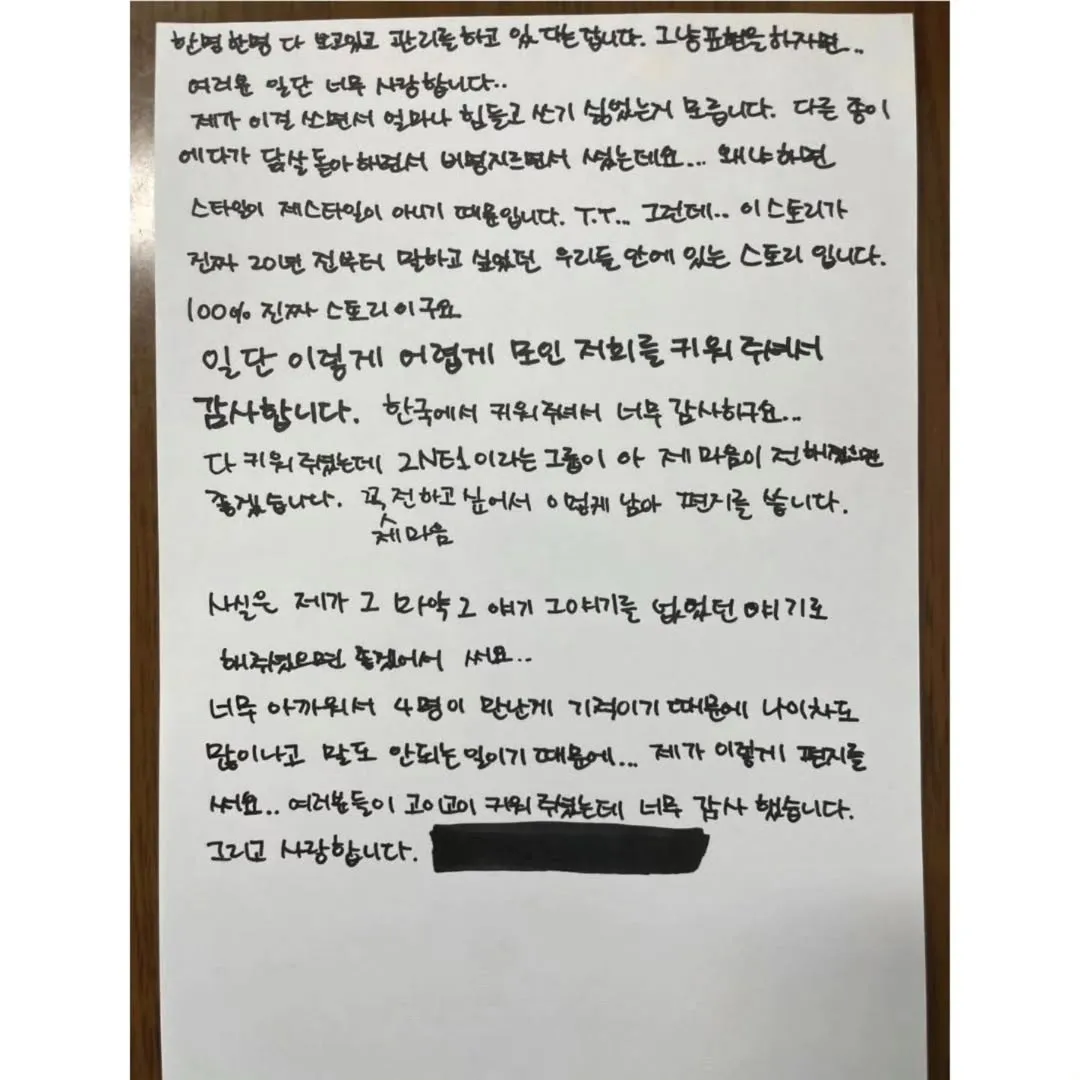 한명한명 다 보고있고 관리를 하고 있다는 겁니다. 그냥 표현을 하자면...
여러분 일단 너무 사랑합니다..
제가 이걸 쓰면서 얼마나 힘들고 쓰기 싫었는지 모릅니다. 다른 종이
에다가 닭살돋아 하면서 비명지르면서 썼는데요... 왜냐하면
스타일이 제스타일이 아니기 때문입니다. T.T... 그런데.. 이 스토리가
진짜 20년 전부터 말하고 싶었던 우리들 안에 있는 스토리 입니다.
100% 진짜 스토리이구요
일단 이렇게 어렵게 모인 저희를 키워주셔서
감사합니다. 한국에서 키워주셔서 너무 감사하구요...
다 키워주셨는데 2NE1이라는 그룹이 아 제 마음이 전해졌으면
좋겠습니다. 꼭 전하고싶어서 이렇게 남아 편지를 씁니다.
제 마음
사실은 제가 그 마약 그 얘기 그얘기를 없었던 얘기로
해주셨으면 좋겠어서 써요..
너무 아까워서 4명이 만난게 기적이기 때문에 나이차도
많이나고 말도 안되는 일이기 때문에... 제가 이렇게 편지를
써요.. 여러분들이 고이고이 키워주셨는데 너무 감사했습니다.
그리고 사랑합니다.